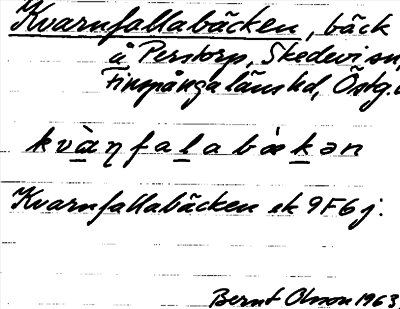 Kvarnfallabäcken, bäck
å Perstorp, Skedevi sn,
Finspånga länshd, Östg.
kvàηfalabäkən
Kvarnfallabäcken ek 9F6j.
Bernt Olsson 1963.